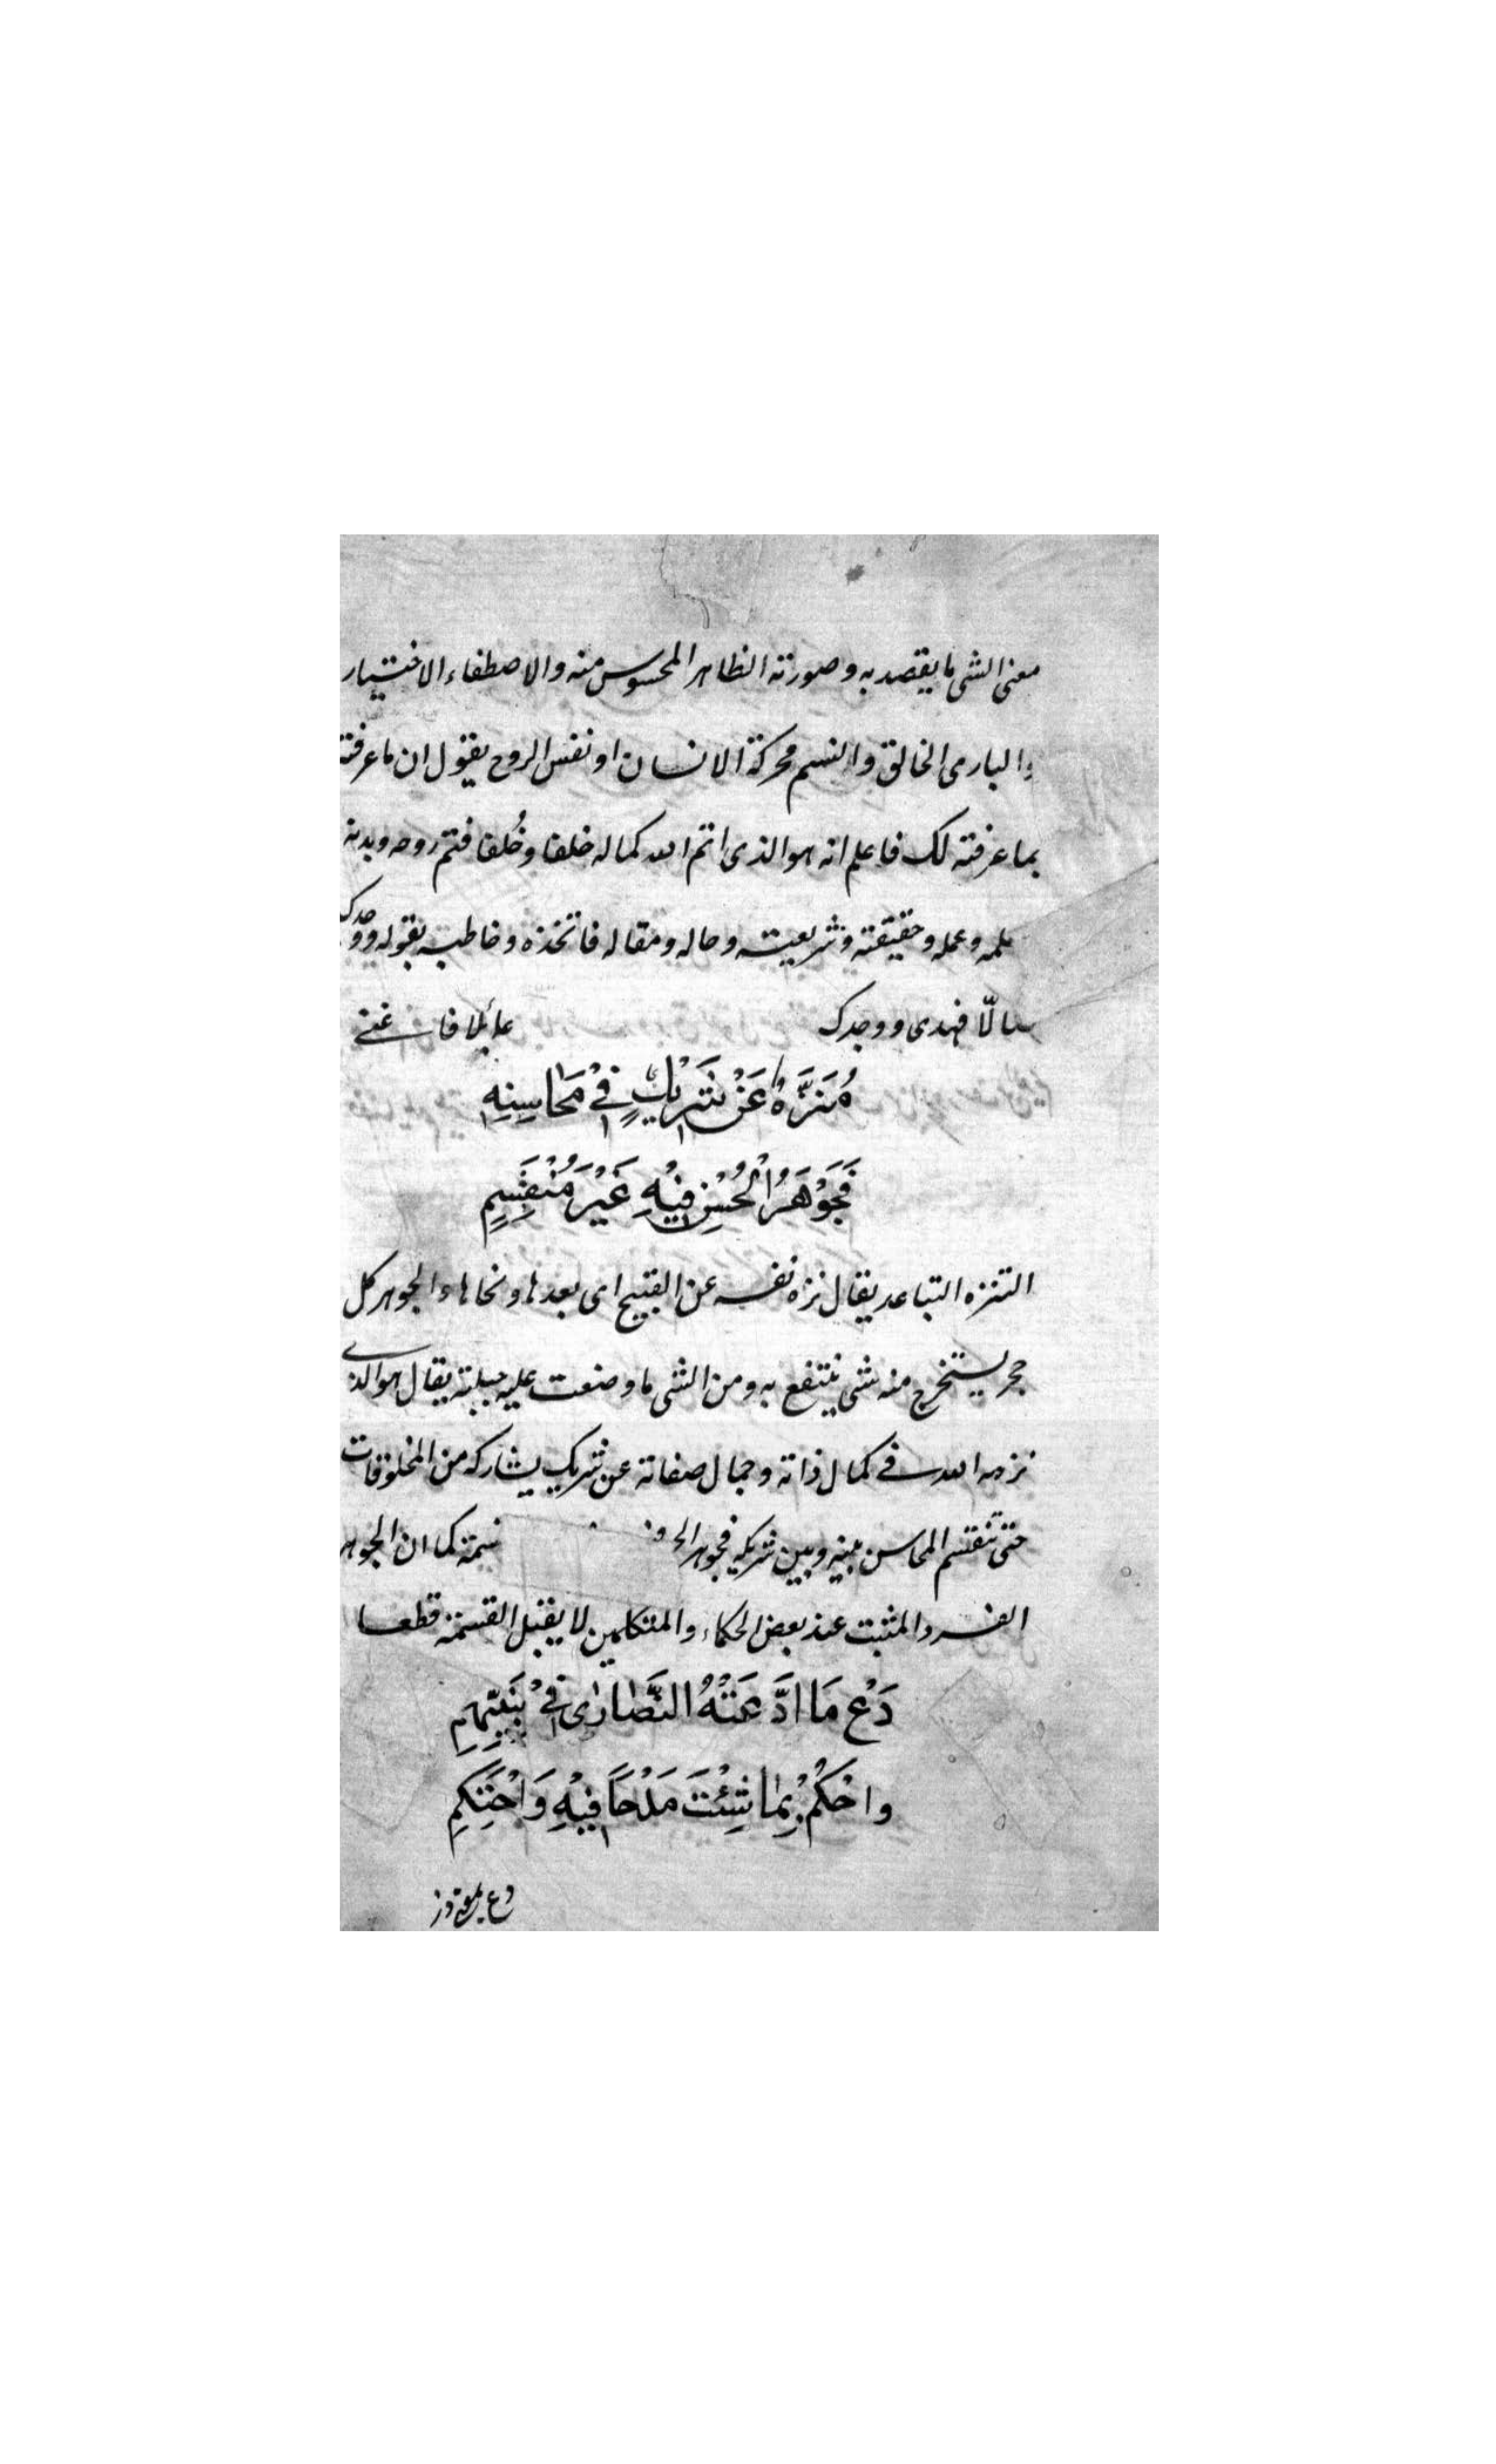 معنى الشى ما يقصد به وصورته الظاهر المحسوس منه والاصطفاء الاختيار
والبارى الخالق والنسم محركة الانسان او نفس الروح يقول ان ما عرفته
بما عرفته لك فاعلم انه هو الذى اتم الله كماله خلقا وخُلقا فتم روحه وبدنه
علمه وعمله وحقيقته وشريعته وحاله ومقاله فاتخذه وخاطبه بقوله ووجدك
ضالّا فهدى ووجدك عائلا فاغنى
مُنَزَّهٌ عَنْ شَرِيْكٍ فِيْ مَحَاسِنِهِ
فَجَوْهَرُ الْحُسْنِ فِيْهِ غَيْرُ مُنْقَسِمٍ
التنزه التباعد يقال نزه نفسه عن القبيح اى بعدها ونحاها والجوهر كل
حجر يستخرج منه شى ينتفع به ومن الشى ما وضعت عليه جبلته يقال هو الذى
نزهه الله فى كمال ذاته وجمال صفاته عن شريك يشاركه من المخلوقات
حتى تنقسم المحاسن بينه وبين شريكه فجوهر كما ان الجوهر
الفرد المثبت عند بعض الحكماء والمتكلمين لا يقبل القسمة قطعا
دَعْ مَا ادَّعَتْهُ النَّصَارٰى فِيْ نَبِيِّهِمِ
وَاحْكُمْ بِمَا شِئْتَ مَدْحًا فِيْهِ وَاحْتَكِمِ
دع